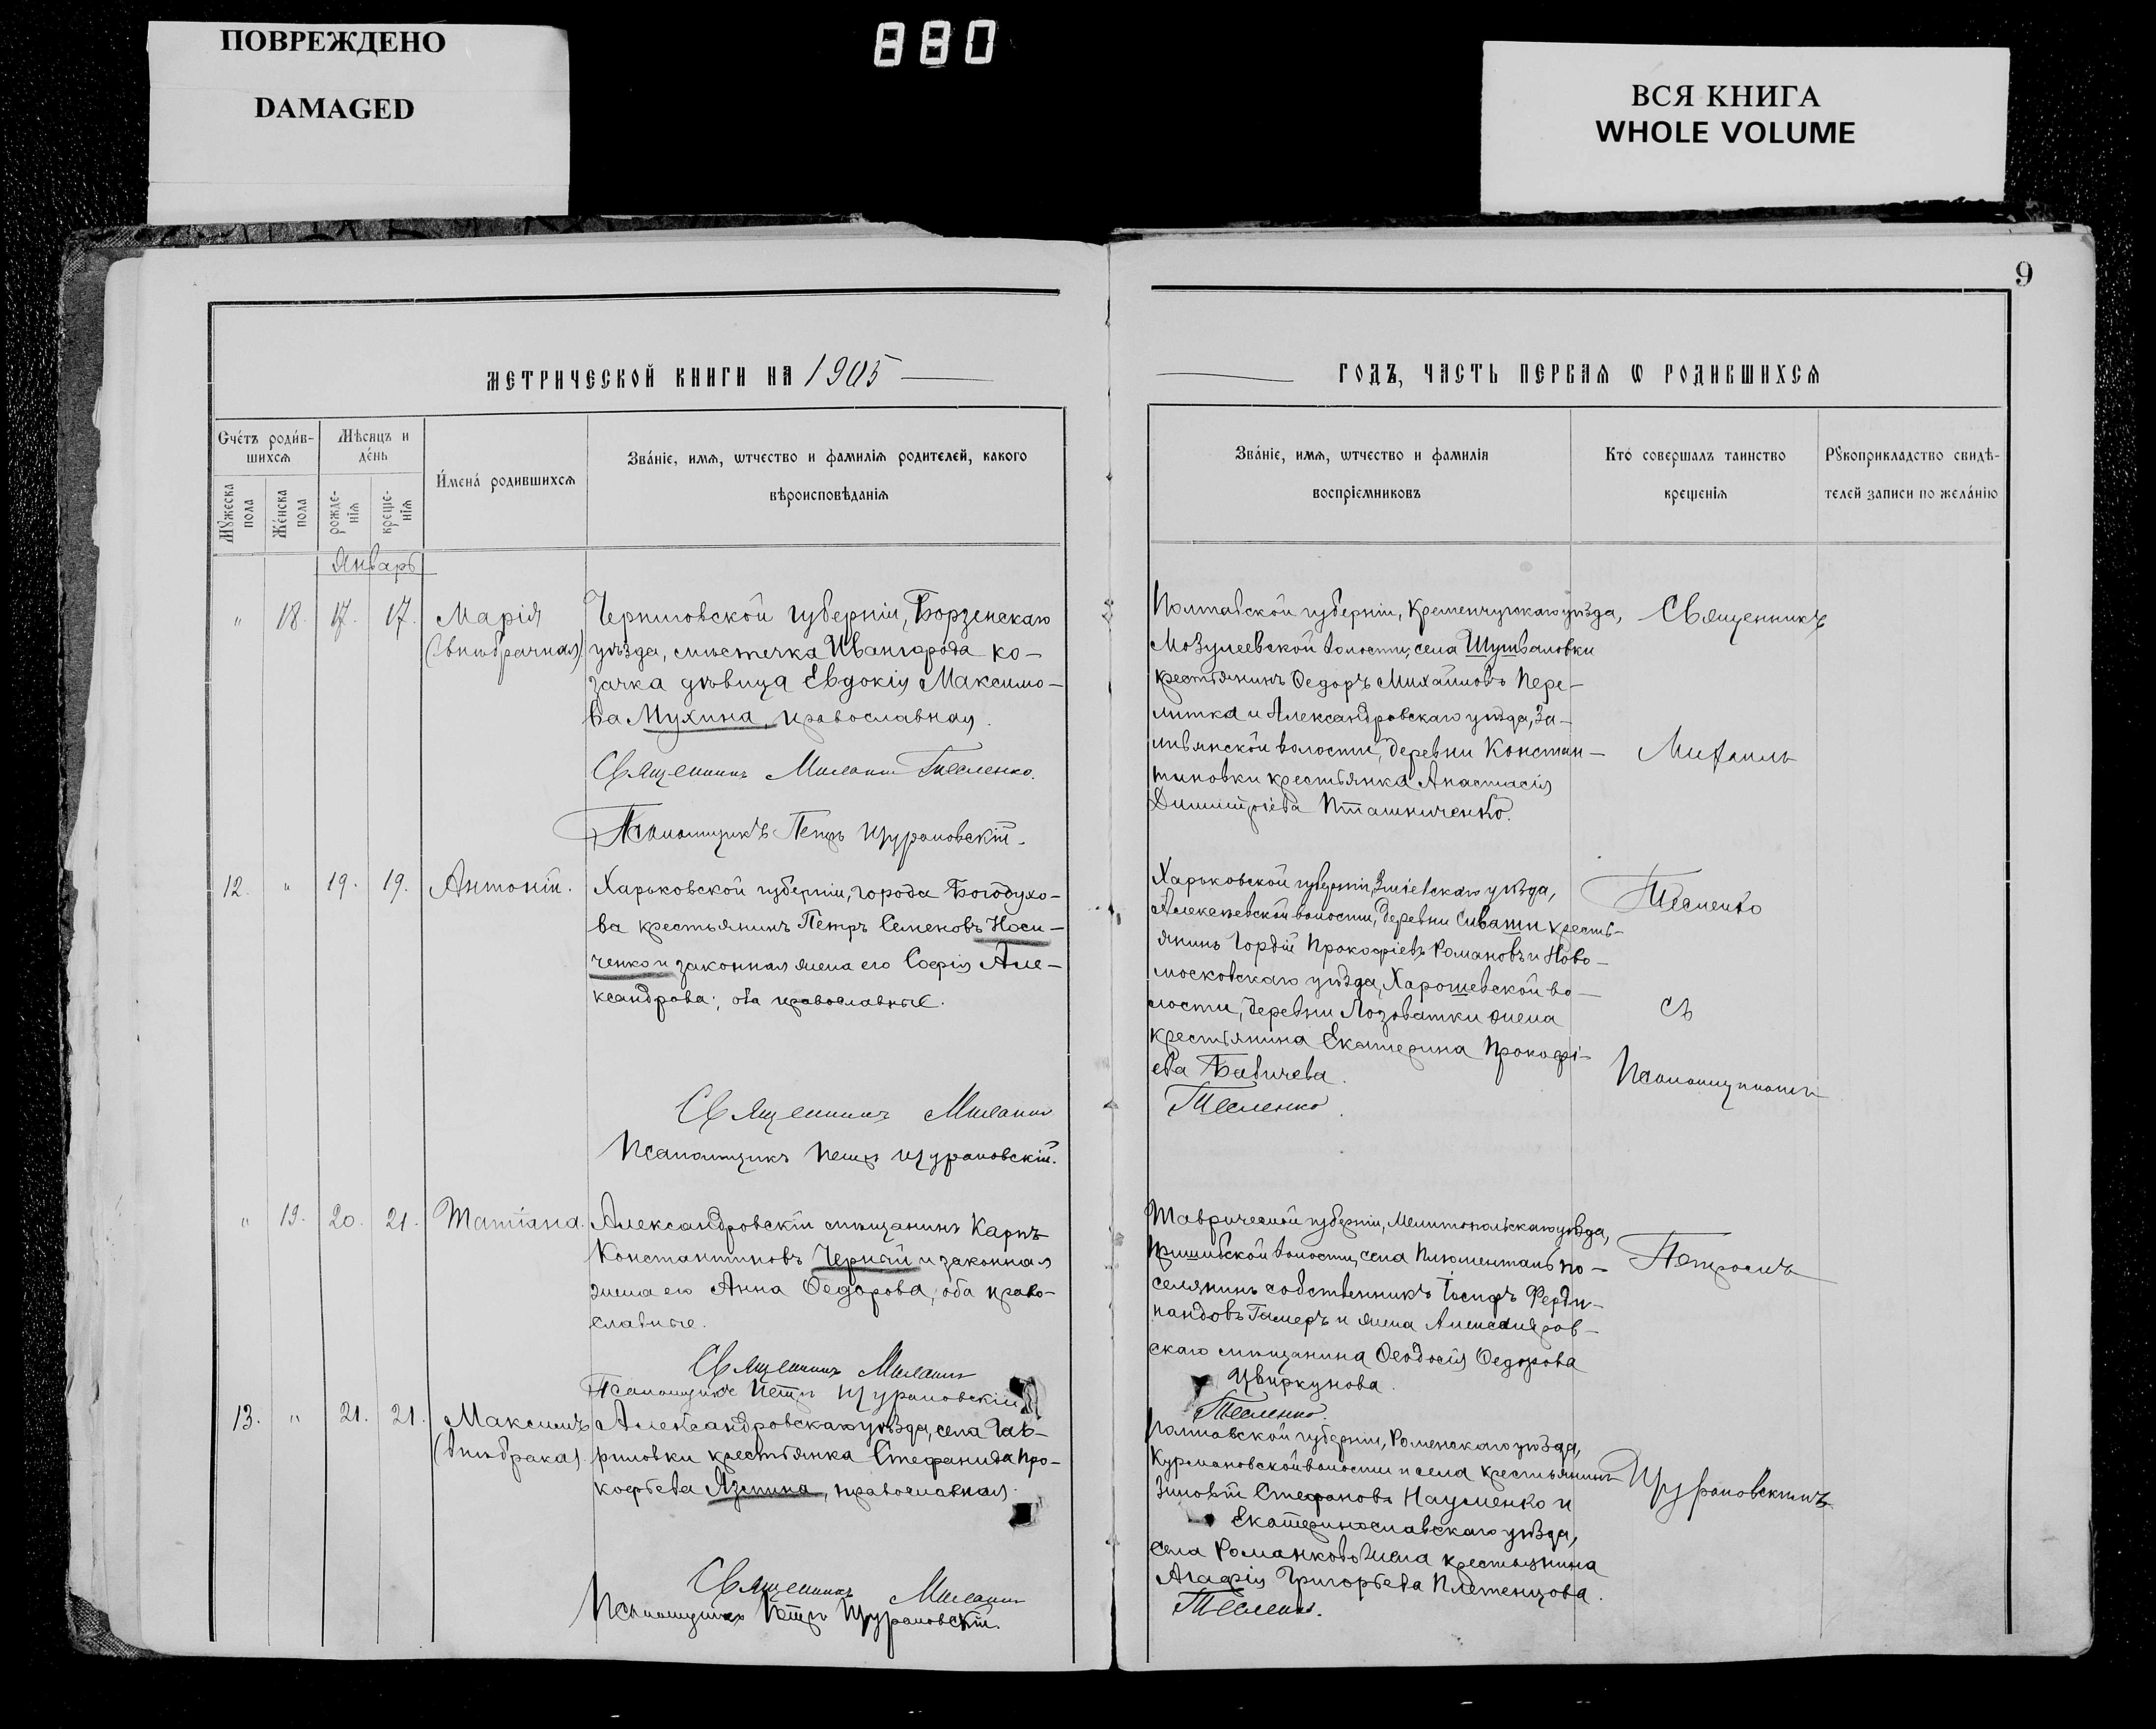 ПОВРЕЖДЕНО
DAMAGED
880
ВСЯ КНИГА
WHOLE VOLUME
9
МЕТРИЧЕСКОЙ КНИГИ НА 1905
ГОДЪ, ЧАСТЬ ПЕРВАѦ Ѡ РОДИВШИХСѦ
Счéтъ роди́в-
шихсѧ
Мѣсяцъ и
дéнь
Мꙋжеска пола
Жéнска пола
рожде-
нїѧ
креще-
нїѧ
И́мена́ родившихсѧ
Зва́нїе, имѧ, ѡтчество и фамилїѧ родителей, какого
вѣроисповѣданїѧ
Зва́нїе, имѧ, ѡтчество и фамилїѧ
воспрїемниковъ
Кто́ совершалъ таинство
крещенїѧ
Рꙋкоприкладство свидѣ-
телей записи по жела́нїю
Январь
" 18. 17. 17. Марія
(внѣбрачная)
Черниговской губерніи, Борзенскаго
уѣзда, мѣстечка Ивангорода ко-
зачка дѣвица Евдокія Максимо-
ва Мухина, православная.
Священникъ Михаилъ Тесленко.
Псаломщикъ Петръ Щурановскій.
Полтавской губерніи, Кременчугскаго уѣзда,
Мозулеевской волости, села Шушваловки
крестьянинъ Ѳедоръ Михайловъ Пере-
митка и Александровскаго уѣзда, За-
ливянской волости, деревни Констан-
тиновки крестьянка Анастасія
Димитріева Пташниченко.
Священникъ
Михаилъ
12. " 19. 19. Антоній.
Харьковской губерніи, города Богодухо-
ва крестьянинъ Петръ Семеновъ Носи-
ченко и законная жена его Софія Але-
ксандрова; оба православные.
Священникъ Михаилъ
Псаломщикъ Петръ Щурановскій.
Харьковской губерніи, Зміевскаго уѣзда,
Алексѣевской волости, деревни Сиваши кресть-
янинъ Гордій Прокофіевъ Романовъ и Ново-
московскаго уѣзда, Харошевской во-
лости, деревни Лозоватки жена
крестьянина Екатерина Прокофі-
ева Бабичева.
Тесленко.
Тесленко
съ
Псаломщикомъ
" 19. 20. 21. Татіана.
Александровскій мѣщанинъ Карпъ
Константиновъ Черный и законная
жена его Анна Ѳедорова, оба право-
славные.
Священникъ Михаилъ
Псаломщикъ Петръ Щурановскій
Таврической губерніи, Мелитопольскаго уѣзда,
Пришибской волости, села Блюменталь по-
селянинъ собственникъ Іосифъ Ферди-
нандовъ Гамеръ и жена Александров-
скаго мѣщанина Ѳеодосія Ѳедорова
Цвиркунова.
Тесленко.
Петромъ
13. " 21. 21. Максимъ
(внѣбрака).
Александровскаго уѣзда, села Гав-
риловки крестьянка Стефанида Про-
кофьева Язмина, православная.
Священникъ Михаилъ
Псаломщикъ Петръ Щурановскій.
Полтавской губерніи, Роменскаго уѣзда,
Курмановской волости и села крестьянинъ
Зиновій Стефановъ Науменко и
Екатеринославскаго уѣзда,
села Романково жена крестьянина
Агафія Григорьева Плетенцова.
Тесленко.
Щурановскимъ